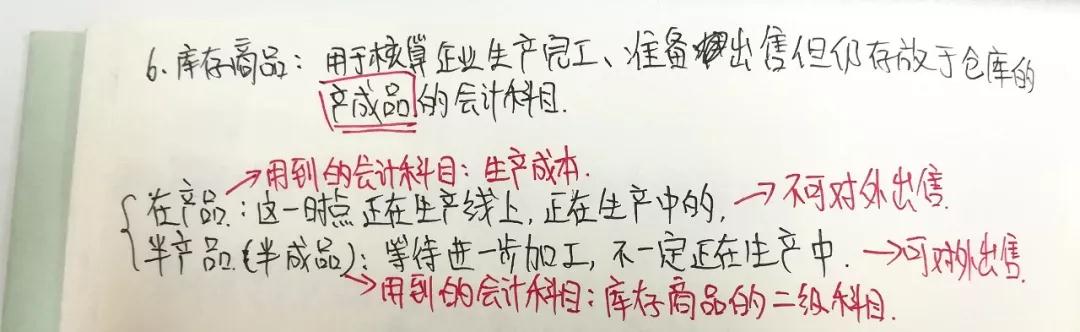 6.库存商品：用于核算企业生产完工、准备出售但仍存放于仓库的
产成品的会计科目.
→用到的会计科目：生产成本.
在产品：这一时点正在生产线上,正在生产中的, →不可对外出售.
半产品(半成品)：等待进一步加工,不一定正在生产中. →可对外出售.
→用到的会计科目：库存商品的二级科目.